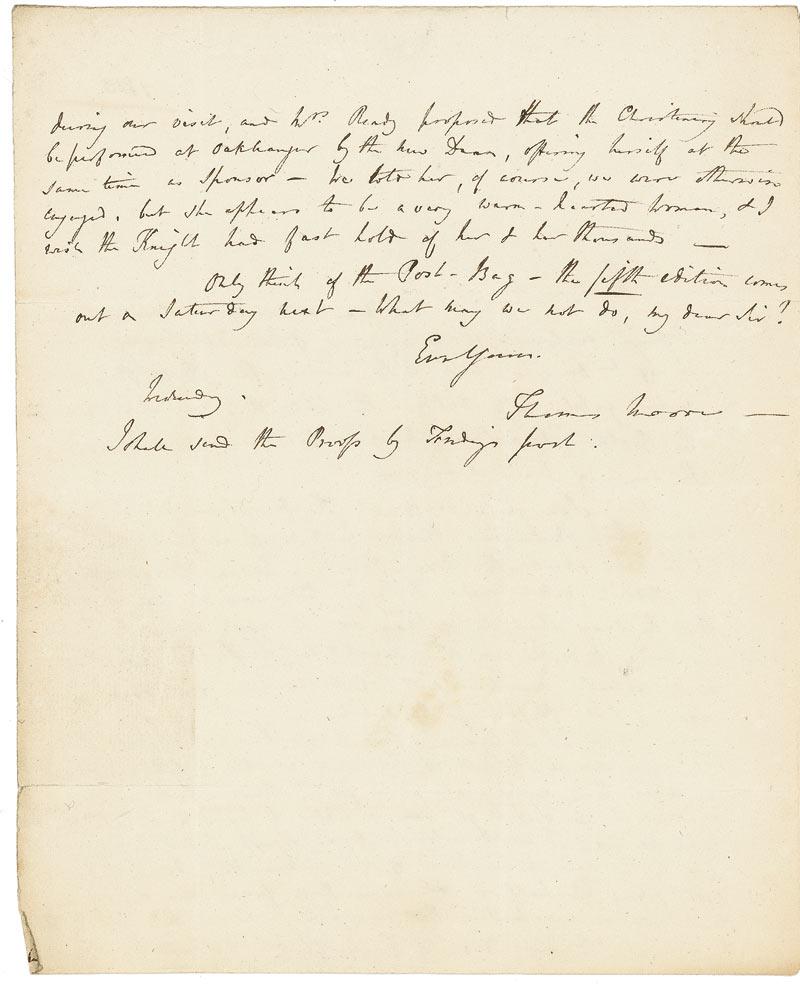 during our visit, and Mrs. Ready proposed that the Christening should
be performed at Oakhanger by the new Dean, offering herself at the
same time as Sponsor – We told her, of course, we were otherwise
engaged, but she appears to be a very warm-hearted woman, & I
wish the Knight had fast hold of her & her thousands —
Only think of the Post-Bag – the fifth edition comes
out on Saturday next – What may we not do, my dear Sir?
Ever Yours.
Wednesday.
Thomas Moore —
I shall send the Proofs by post.